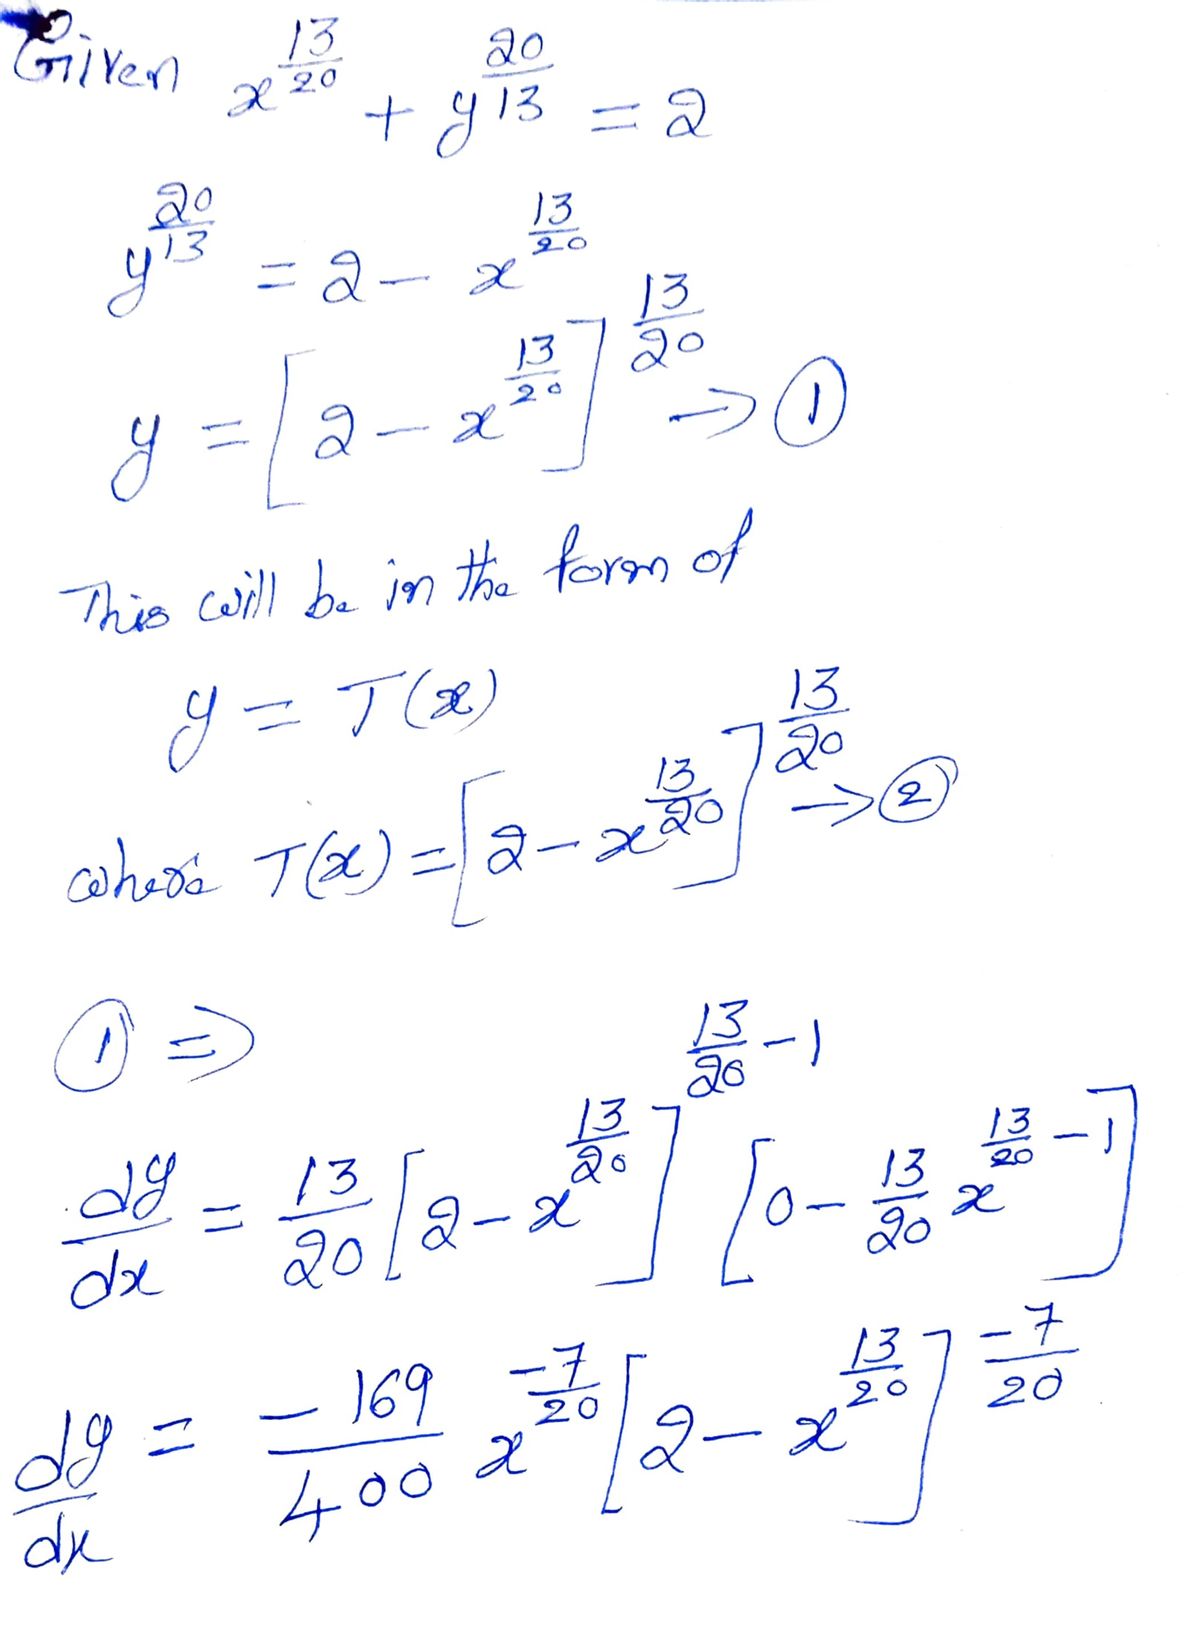 Given x^(13/20) + y^(20/13) = 2
y^(20/13) = 2 - x^(13/20)
y = [2 - x^(13/20)]^(13/20) → ①
This will be in the form of
y = T(x)
where T(x) = [2 - x^(13/20)]^(13/20) → ②
① ⇒
dy/dx = 13/20 [2 - x^(13/20)]^(13/20 - 1) [0 - 13/20 x^(13/20 - 1)]
dy/dx = -169/400 x^(-7/20) [2 - x^(13/20)]^(-7/20)